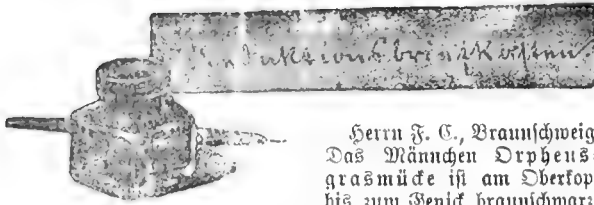 Redaktionsbriefkasten
Herrn F. C., Braunschweig
Das Männchen Orpheus-
grasmücke ist am Oberkop
bis zum Genick braunschwarz